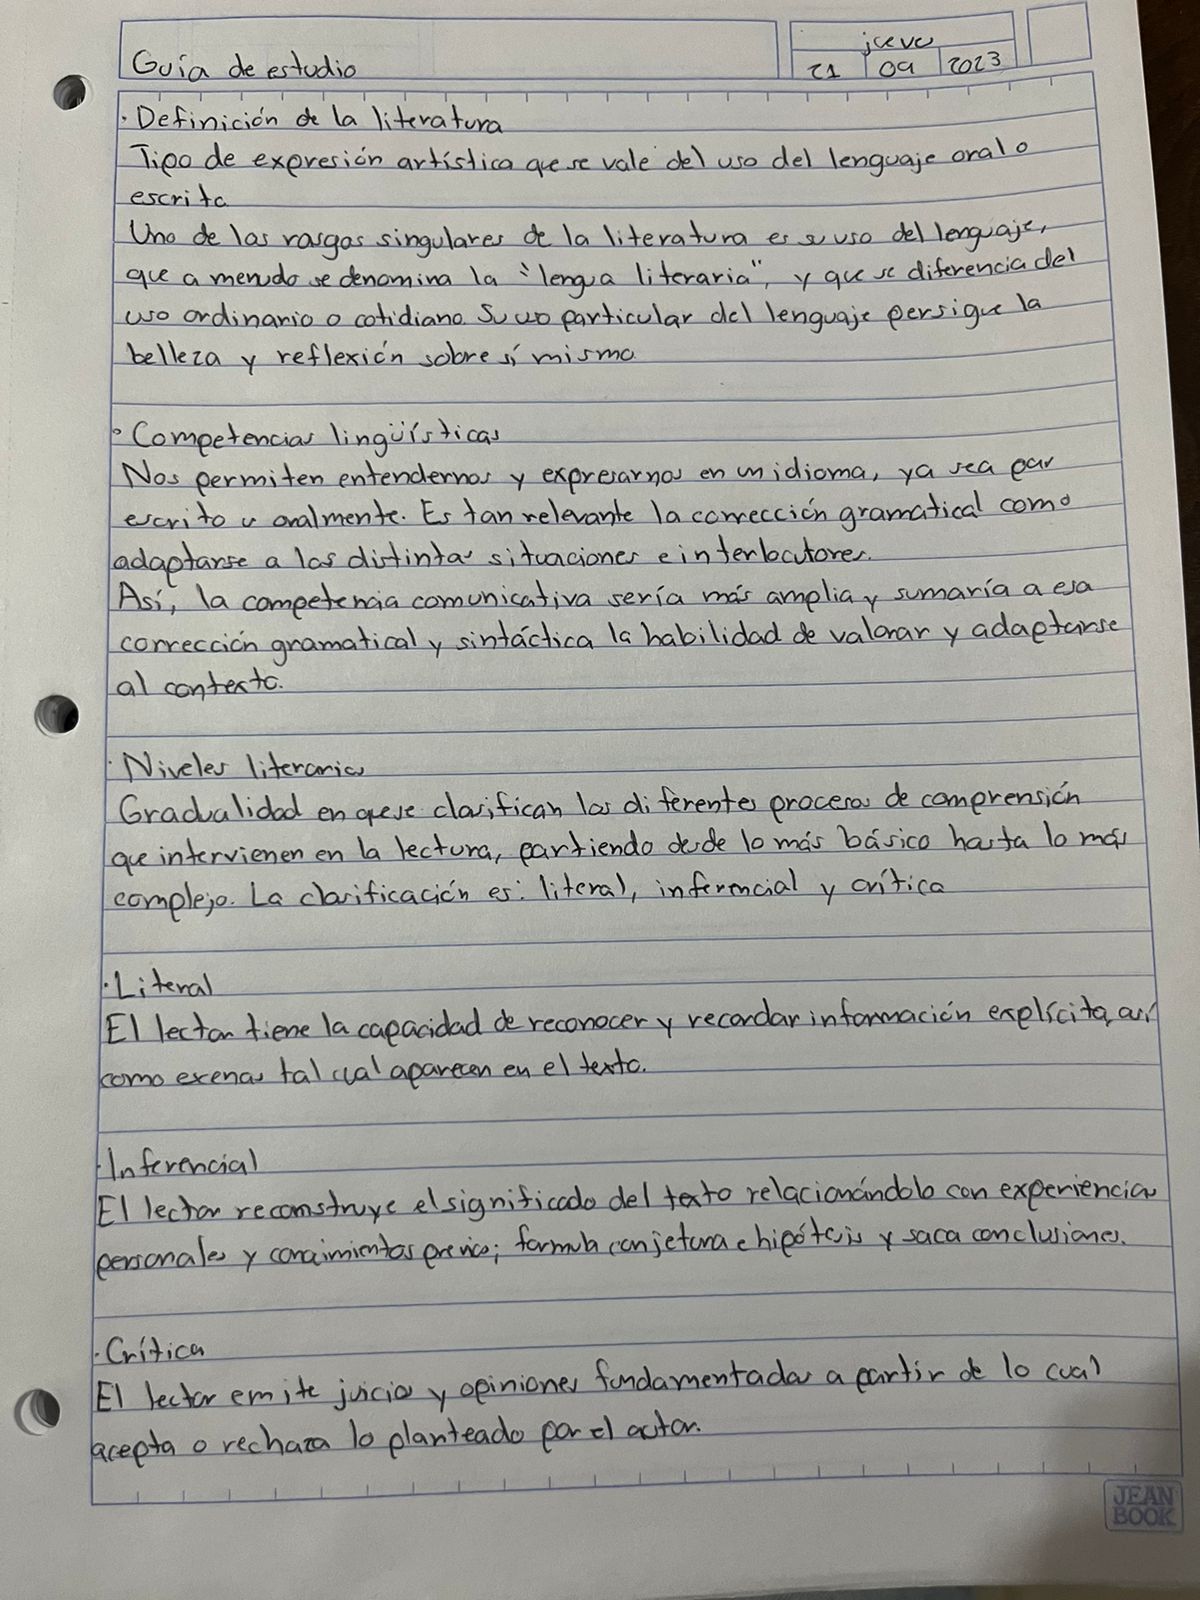 Guía de estudio
jueves
21 09 2023
· Definición de la literatura
Tipo de expresión artística que se vale del uso del lenguaje oral o
escrito
Uno de los rasgos singulares de la literatura es su uso del lenguaje,
que a menudo se denomina la "lengua literaria", y que se diferencia del
uso ordinario o cotidiano. Su uso particular del lenguaje persigue la
belleza y reflexión sobre sí mismo.
· Competencias lingüísticas
Nos permiten entendernos y expresarnos en un idioma, ya sea por
escrito u oralmente. Es tan relevante la corrección gramatical como
adaptarse a las distintas situaciones e interlocutores.
Así, la competencia comunicativa sería más amplia y sumaría a esa
corrección gramatical y sintáctica la habilidad de valorar y adaptarse
al contexto.
· Niveles literarios
Gradualidad en que se clasifican los diferentes procesos de comprensión
que intervienen en la lectura, partiendo desde lo más básico hasta lo más
complejo. La clasificación es: literal, inferencial y crítica
· Literal
El lector tiene la capacidad de reconocer y recordar información explícita, así
como exenas tal cual aparecen en el texto.
· Inferencial
El lector reconstruye el significado del texto relacionándolo con experiencias
personales y conocimientos previos; formula conjetura e hipótesis y saca conclusiones.
· Crítica
El lector emite juicios y opiniones fundamentadas a partir de lo cual
acepta o rechaza lo planteado por el autor.
JEAN
BOOK